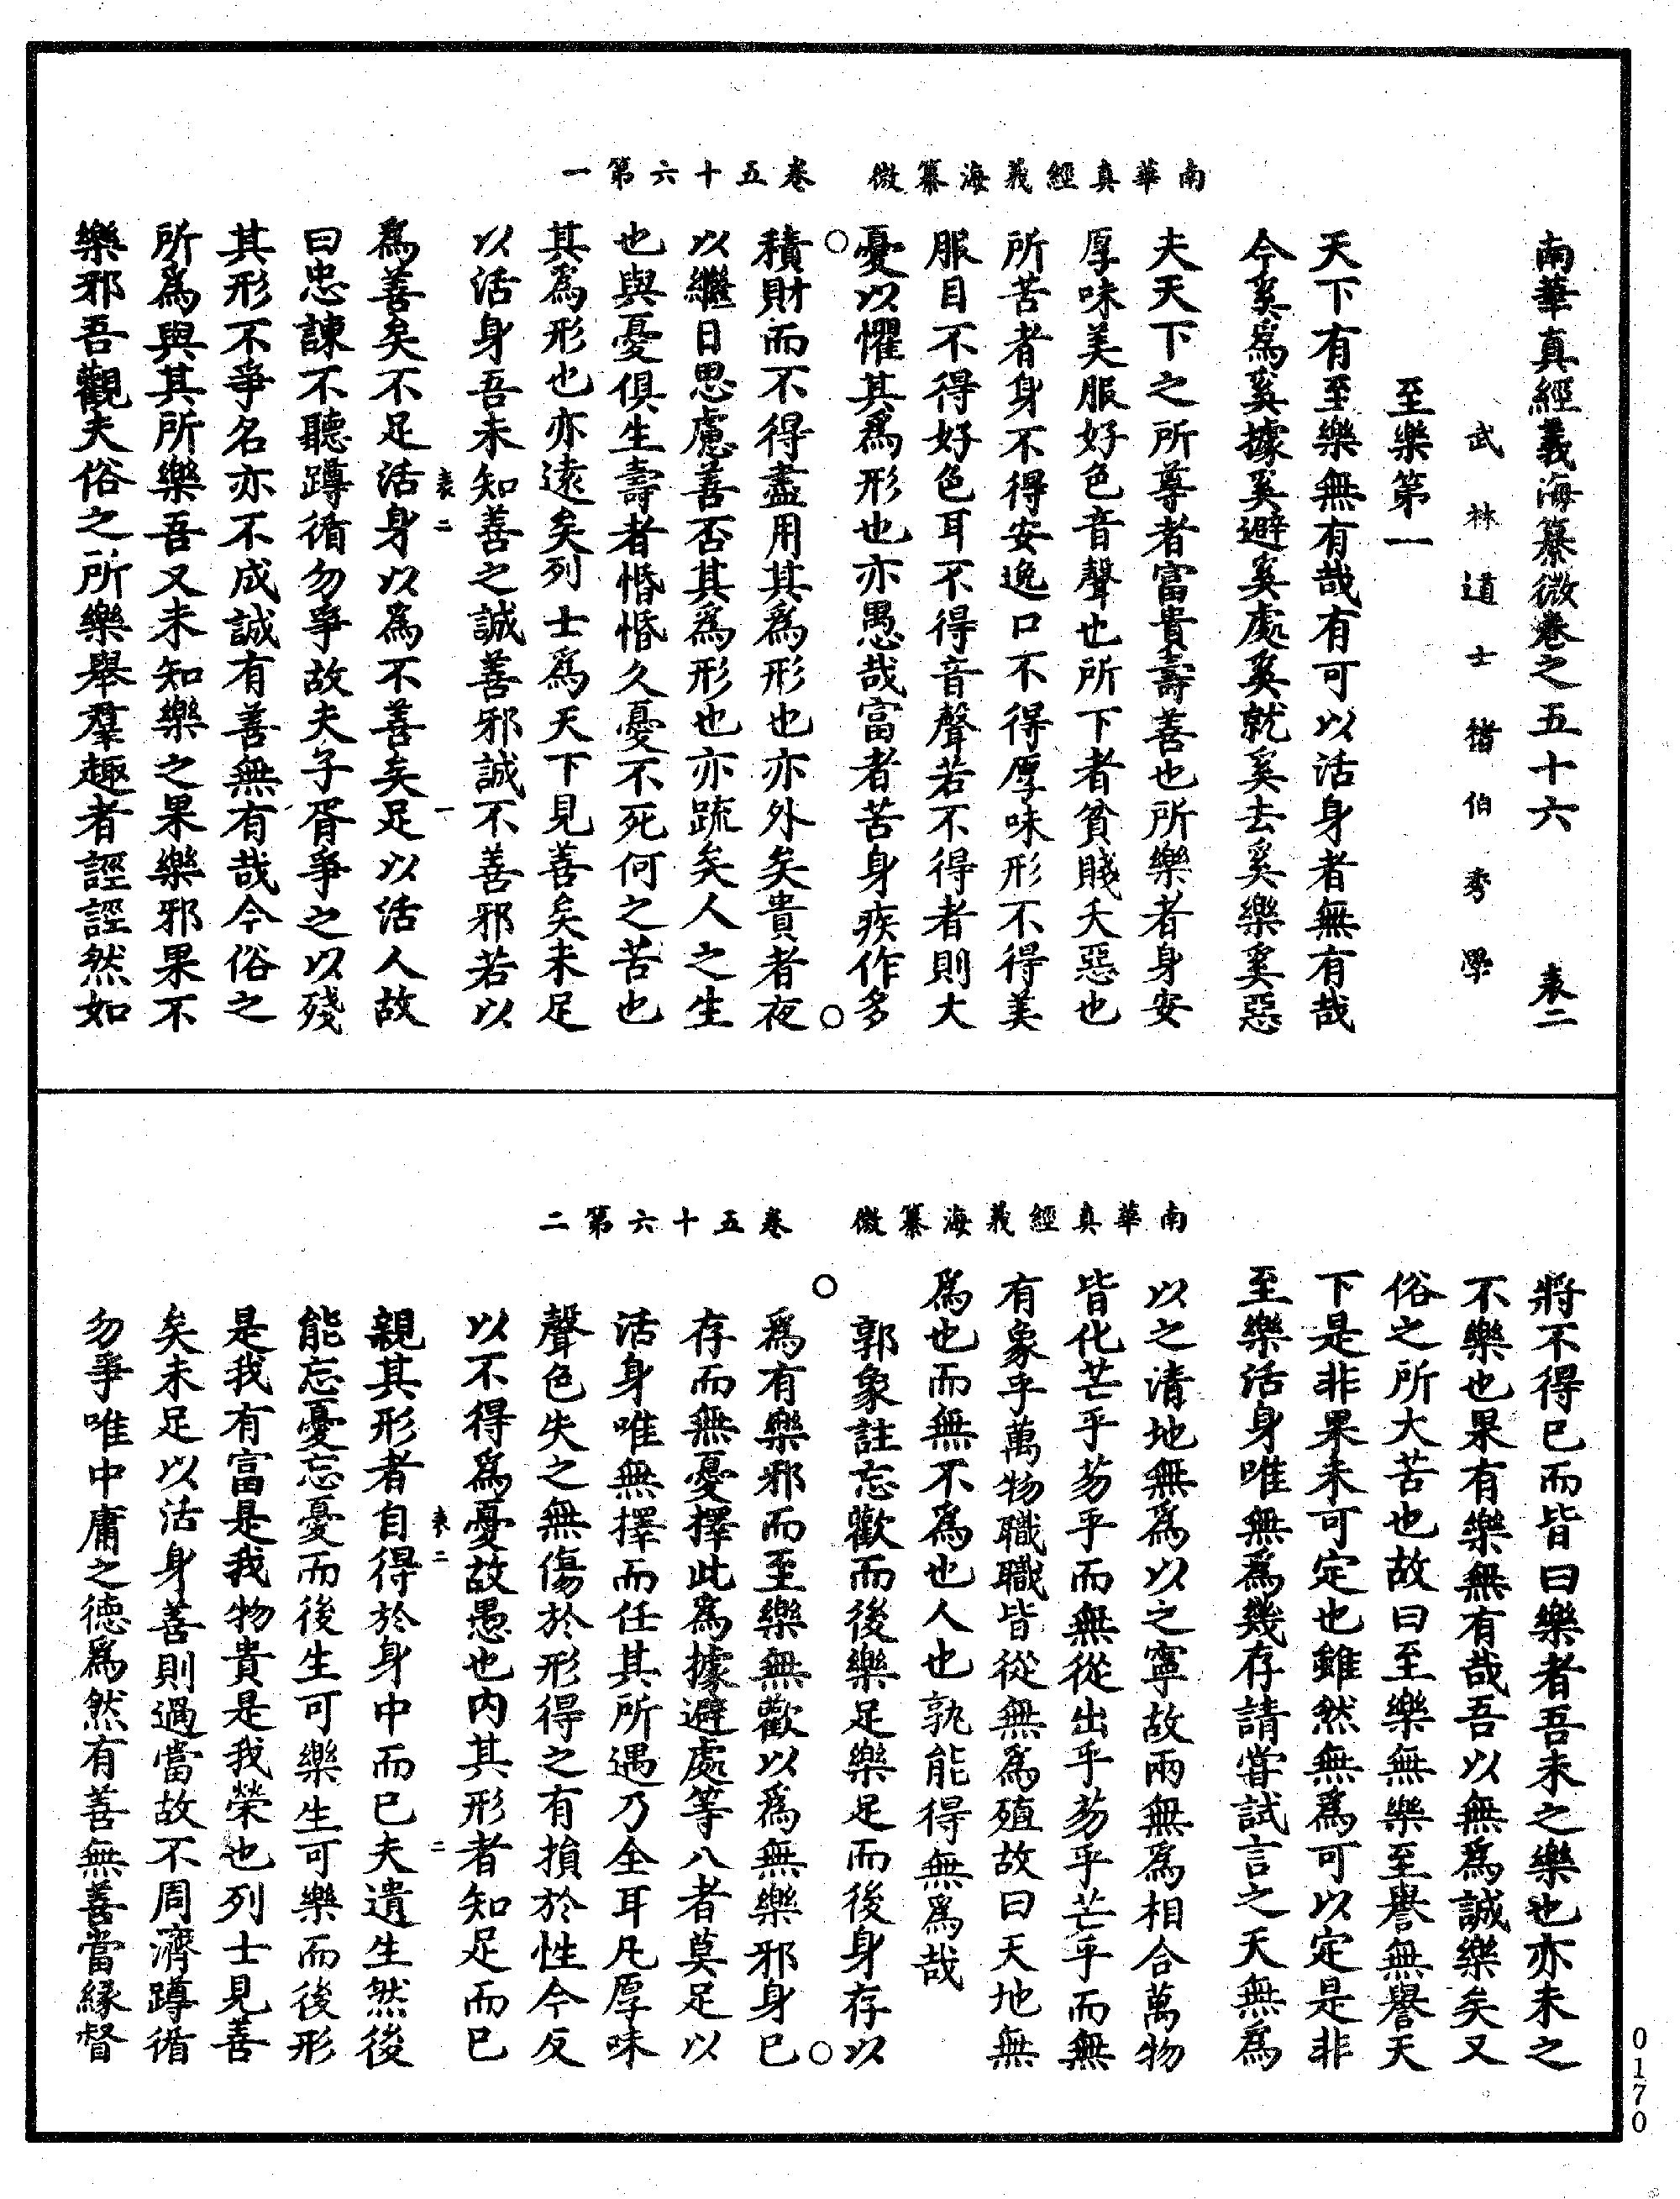 南華真經義海纂微卷之五十六 表二
武林道士褚伯秀學
至樂第一
天下有至樂無有哉有可以活身者無有哉
今奚為奚據奚避奚處奚就奚去奚樂奚惡
夫天下之所尊者富貴壽善也所樂者身安
厚味美服好色音聲也所下者貧賤夭惡也
所苦者身不得安逸口不得厚味形不得美
服目不得好色耳不得音聲若不得者則大
憂以懼其為形也亦愚哉富者苦身疾作多
南華真經義海纂微 卷五十六第一
積財而不得盡用其為形也亦外矣貴者夜
以繼日思慮善否其為形也亦疏矣人之生
也與憂俱生壽者惛惛久憂不死何之苦也
其為形也亦遠矣列士為天下見善矣未足
以活身吾未知善之誠善邪誠不善邪若以
表二 一
為善矣不足活身以為不善矣足以活人故
曰忠諫不聽蹲循勿爭故夫子胥爭之以殘
其形不爭名亦不成誠有善無有哉今俗之
所為與其所樂吾又未知樂之果樂邪果不
樂邪吾觀夫俗之所樂舉羣趣者誙誙然如
將不得已而皆曰樂者吾未之樂也亦未之
不樂也果有樂無有哉吾以無為誠樂矣又
俗之所大苦也故曰至樂無樂至譽無譽天
下是非果未可定也雖然無為可以定是非
至樂活身唯無為幾存請嘗試言之天無為
以之清地無為以之寧故兩無為相合萬物
皆化芒乎芴乎而無從出乎芴乎芒乎而無
有象乎萬物職職皆從無為殖故曰天地無
為也而無不為也人也孰能得無為哉
郭象註忘歡而後樂足樂足而後身存以
南華真經義海纂微 卷五十六第二
為有樂邪而至樂無歡以為無樂邪身已
存而無憂擇此為據避處等八者莫足以
活身唯無擇而任其所遇乃全耳凡厚味
聲色失之無傷於形得之有損於性今反
以不得為憂故愚也內其形者知足而已
表二 二
親其形者自得於身中而已夫遺生然後
能忘憂忘憂而後生可樂生可樂而後形
是我有富是我物貴是我榮也列士見善
矣未足以活身善則過當故不周濟蹲循
勿爭唯中庸之德為然有善無善當緣督
0170